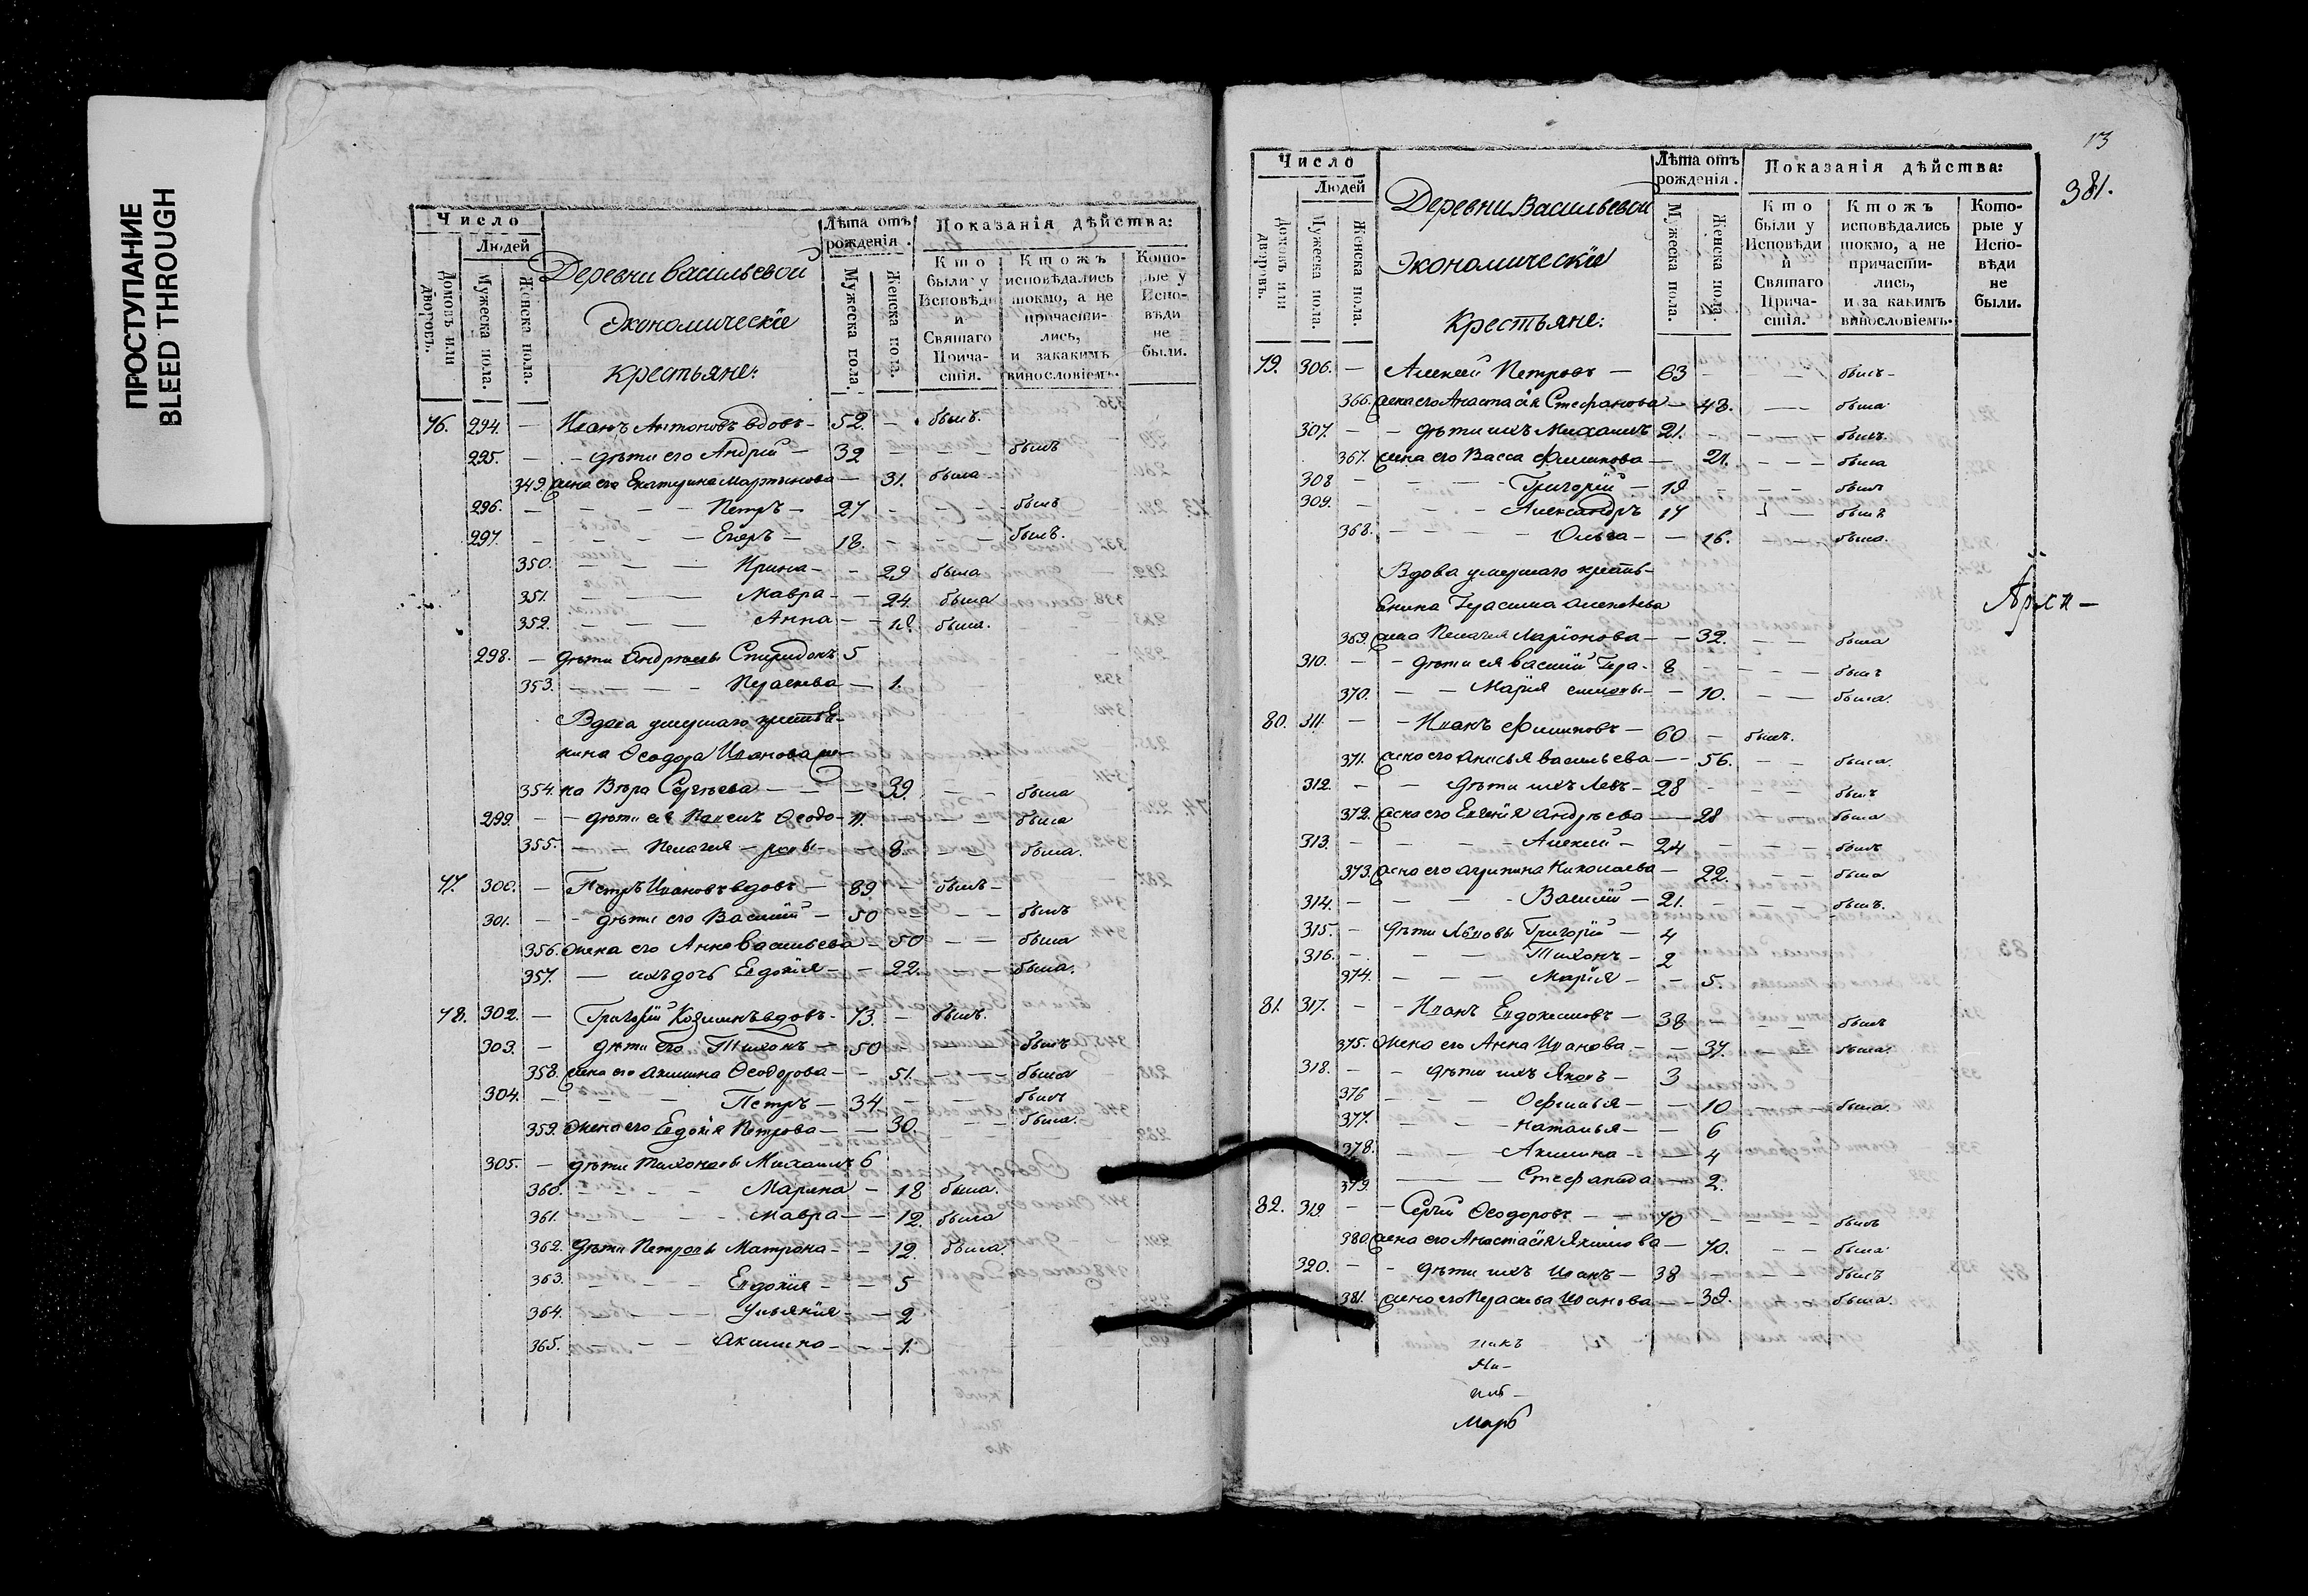 ПРОСТУПАНИЕ
BLEED THROUGH
Число
Людей
Домовъ или дворовъ.
Мужеска пола.
Женска пола.
Деревни васильевой
Экономическїе
Крестьяне:
Лѣта отъ рожденїя.
Мужеска пола.
Женска пола.
Показанія дѣйства:
Кто были у Исповѣди и Святаго Прича-стія.
Ктожъ исповѣдались токмо, а не причасти-лись, и закакимъ винословіемъ.
Кото-рые у Испо-вѣди не были.
76. 294. — Иванъ Антоновъ вдовъ — 52. — былъ.
295. — — дѣти его Андрїй — 32 — — — былъ
349. жена его Екатерина Мартынова — 31. была
296. — — — — Петръ — 27 — — — былъ
297. — — — — Егоръ — 18. — — — былъ.
350. — — — Ирина — — 29 была
351. — — — Мавра — — 24. была
352. — — — Анна — — 18. была.
298. — дѣти Андреевы Спиридонъ 5
353. — — — — Параскева — 1.
Вдова умершаго крестья-
нина Ѳеодора Иванова же-
354. на Вѣра Сергѣева — — — 39. — — была
299. — — дѣти ея Павелъ Ѳеодо- 11. — — — была
355. — — Пелагея — ровы — — 8. — — была.
77. 300. — Петръ Ивановъ вдовъ — 89 — былъ —
301. — — дѣти его Василїй — 50 — — былъ
356. жена его Анна Васильева — 50 — — была
357. — ихъ дочь Евдокїя — — 22. — — была.
78. 302. — Григорїй Козминъ вдовъ — 73. — былъ.
303. — дѣти его Тихонъ — 50 — — — былъ
358. жена его Акилина Ѳеодорова — — 51. — — — была
304. — — — Петръ — 34 — — — былъ
359. жена его Евдокїя Петрова — — 30. — — — была.
305. — дѣти Тихоновы Михаилъ 6
360. — — — — Марина — 18 была.
361. — — — — Мавра — — 12. была
362. дѣти Петровы Матрона — — 12. была.
363. — — — Евдокїя — — 5
364. — — — Ульянїя — — 2
365. — — — Акилина — — — 1.
13
381.
Число
Людей
Домовъ или дворовъ.
Мужеска пола.
Женска пола.
Деревни Васильевой
Экономическїе
Крестьяне:
Лѣта отъ рожденія.
Мужеска пола.
Женска пола.
Показанія дѣйства:
Кто были у Исповѣди и Святаго Прича-стія.
Ктожъ исповѣдались токмо, а не причасти-лись, и за какимъ винословіемъ.
Кото-рые у Испо-вѣди не были.
79. 306. — Алексїй Петровъ — 63 — — — былъ —
366. жена его Анастасїя Стефанова — 48. — — была
307. — — дѣти ихъ Михаилъ 21. — — — — былъ.
367. жена его Васса Филипова — 21. — — — была
308 — — — — Григорїй — 19 — — — былъ
309. — — — Александръ 17 — — былъ
368. — — — — Ольга — — 16. — — была.
Вдова умершаго кресть-
янина Герасима Алексѣева
369. жена Пелагея Ларїонова — — 32. — — была
310. — — дѣти ея василїй Гера- 8 — — — — былъ
370. — — Марїя симовы — — 10. — — была.
80. 311. — — Иванъ Филиповъ — 60 — былъ.
371. жена его Анисья васильева — — 56. — — была.
312. — — дѣти ихъ Левъ — 28 — — — былъ
372. жена его Евгенїя Андрѣева — — 28 — — была
313. — — — — Алексїй — 24 — — — былъ
373. жена его агрипина Николаева — 22. — — была
314. — — — — Василїй — 21. — — — былъ.
315. — дѣти Львовы Григорїй — 4
316. — — — Тихонъ — 2
374. — — — Марїя — — 5.
81. 317. — — Иванъ Евдокимовъ — 38 — — — былъ
375. жена его Анна Иванова — — 37. — — была.
318. — — дѣти ихъ Яковъ — 3
376 — — — Ѳеѳилья — — 10 — — — была.
377. — — — Наталья — — 6
378. — — — Акилина — — 4
379. — — — Стефанида — 2.
82. 319. — — Сергїй Ѳеодоровъ — — 70 — — — — былъ
380. жена его Анастасїя Якимова — 70. — — была
320. — — дѣти ихъ Иванъ — 38 — — — былъ
381. жена его Параскева Иванова — — 39. была.